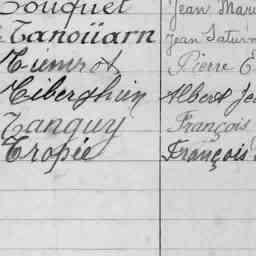 Jean Mari
Tanoüarn Jean Saturn
Tiemrot Pierre
Tiberghien Albert Je
Tanguy François
Tropée François